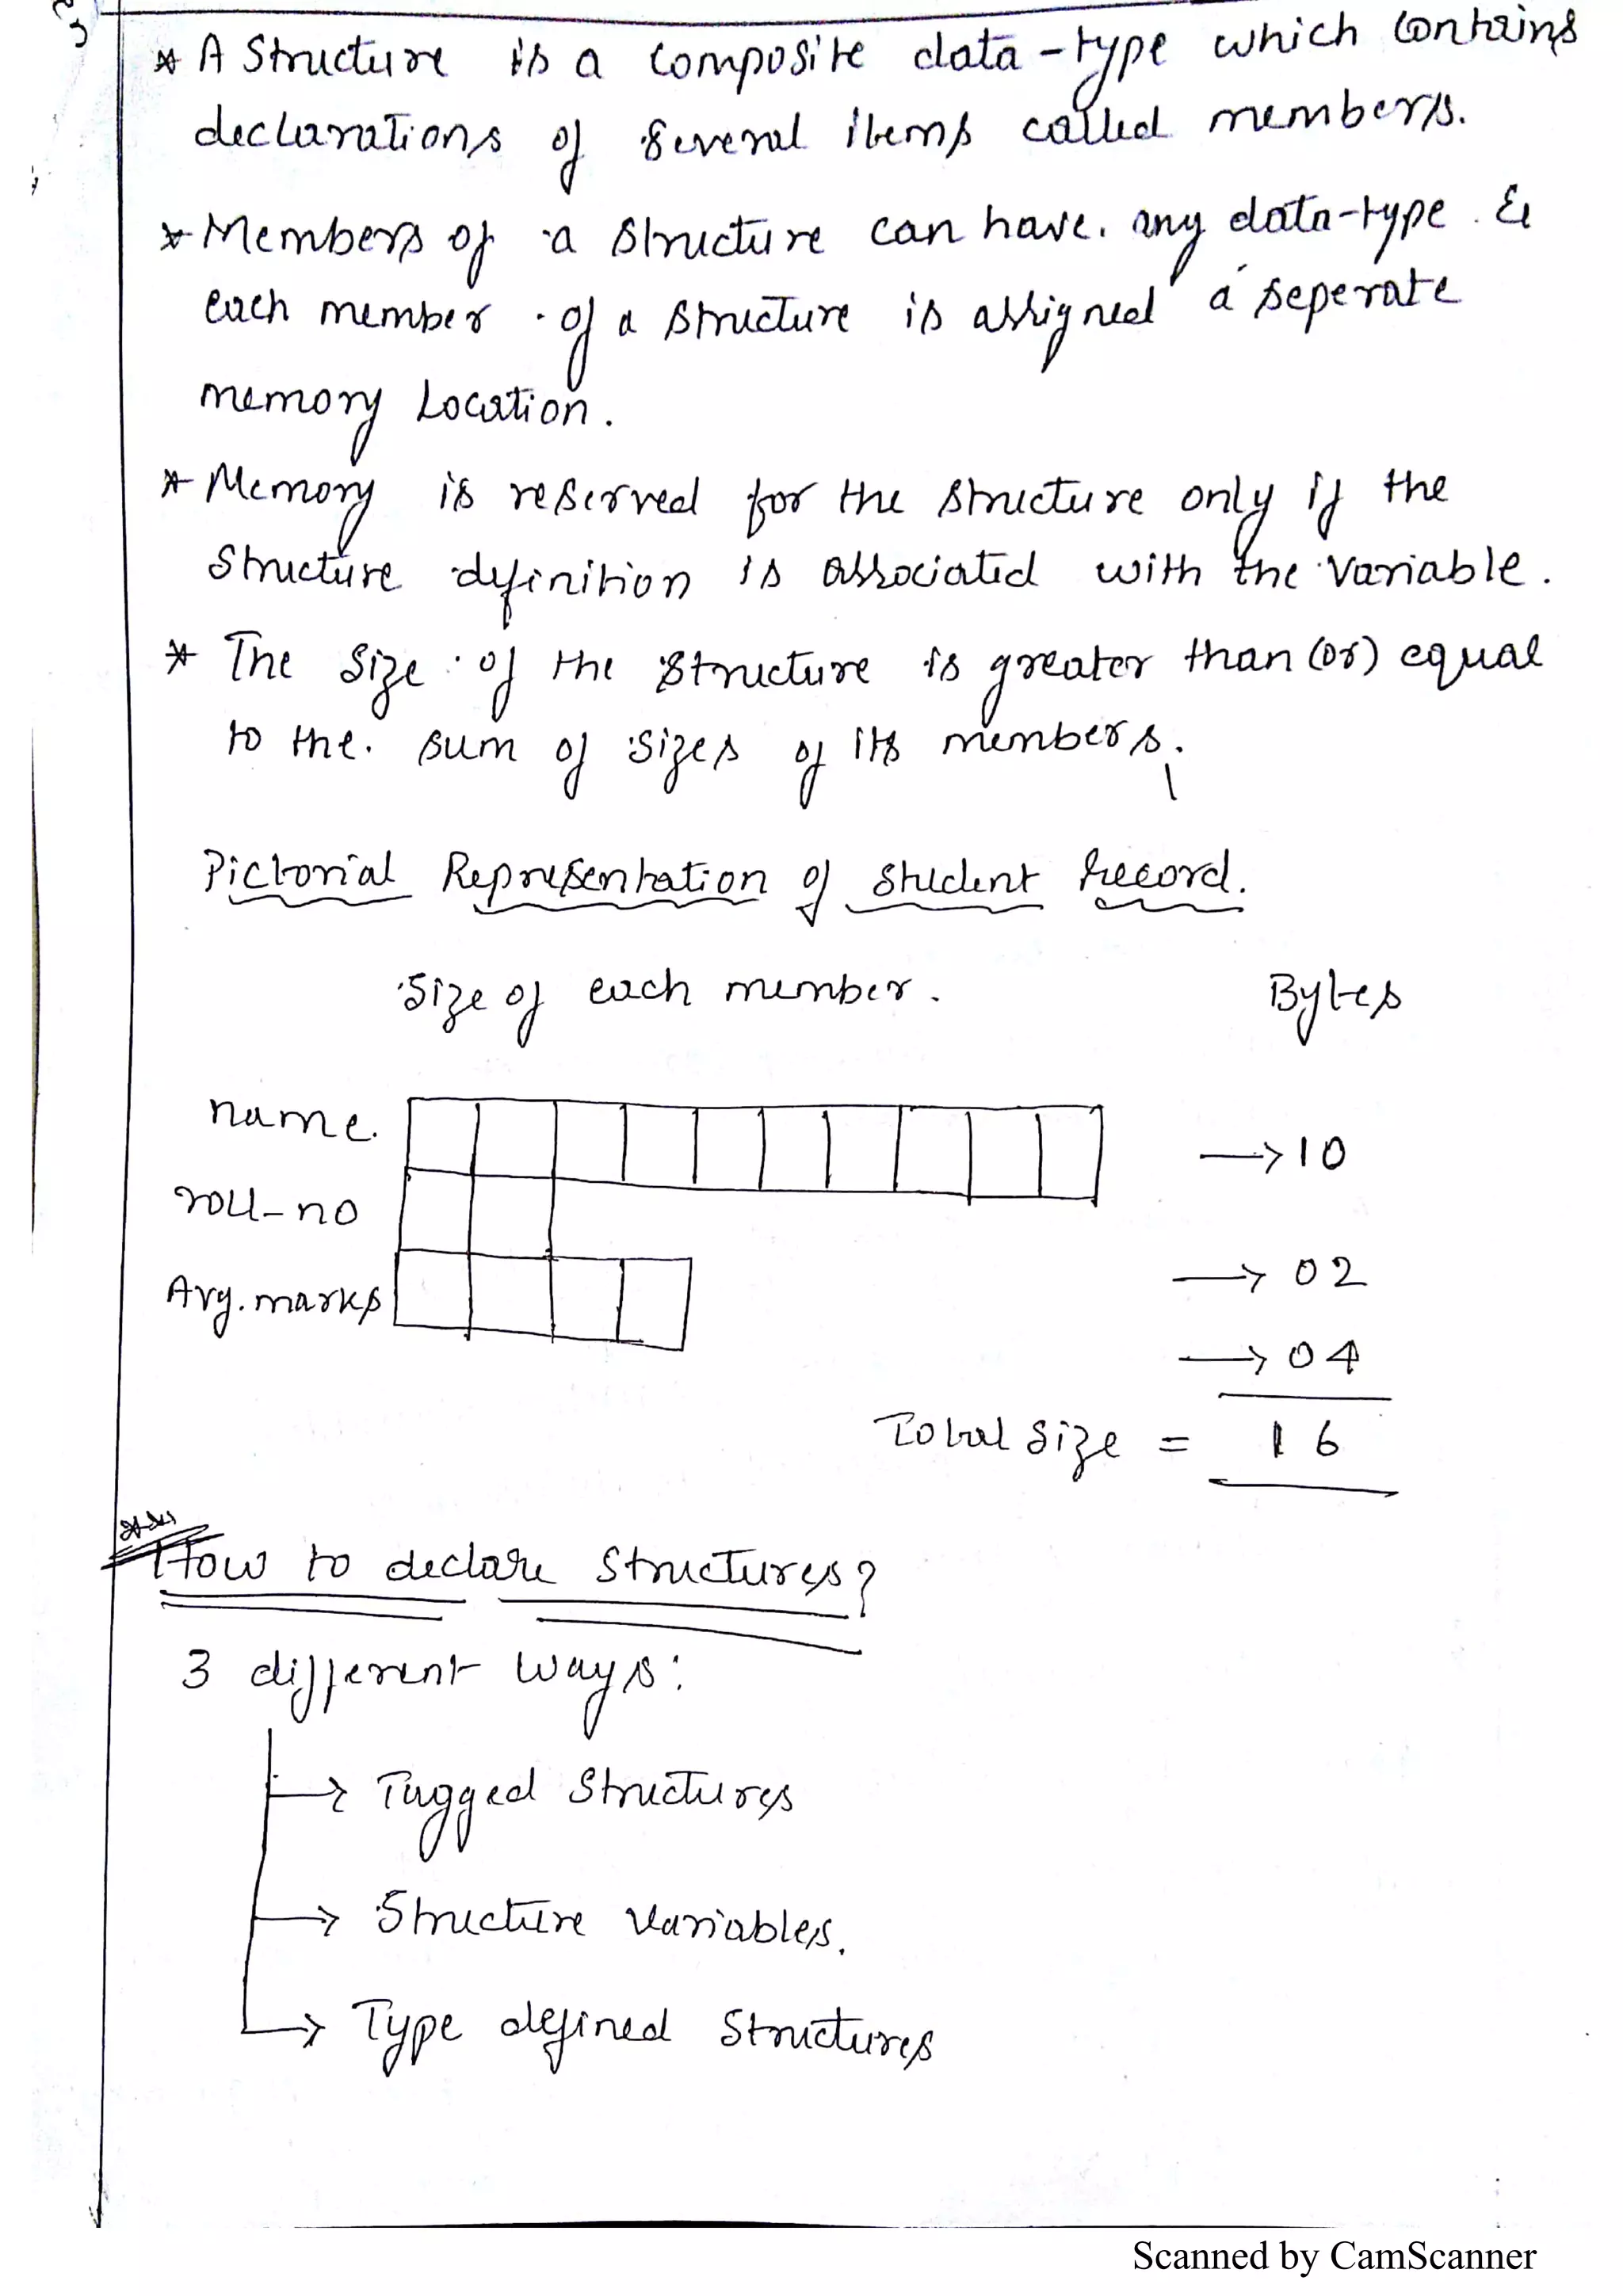 * A Structure is a composite data-type which contains
declarations of several items called members.
* Members of a structure can have any data-type &
each member of a structure is assigned a seperate
memory Location.
* Memory is reserved for the structure only if the
structure definition is associated with the variable.
* The size of the structure is greater than (or) equal
to the sum of sizes of its members.
Pictorial Representation of student Record.
Size of each member. Bytes
name. → 10
roll-no
→ 02
Avg. marks
→ 04
Total size = 16
How to declare structures?
3 different ways:
→ Tagged Structures
→ Structure variables.
→ Type defined structures
Scanned by CamScanner